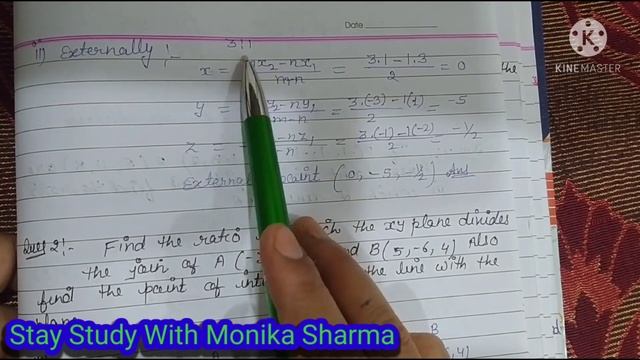 Date
KINEMASTER
ii) Externally :-
3:1
x = x₂-nx₁ / m-n = 3.1-1.3 / 2 = 0 the
y = y₂-ny₁ / m-n = 3.(-3)-1(1) / 2 = -5
z = -nz₁ / -n = 3.(-1)-1(-2) / 2 = -1/2
External point (0, -5, -1/2) Ans
Ques 2:- Find the ratio the xy plane divides
the join of A (- B(5,-6,4) Also
find the point of the line with the
B
Stay Study With Monika Sharma